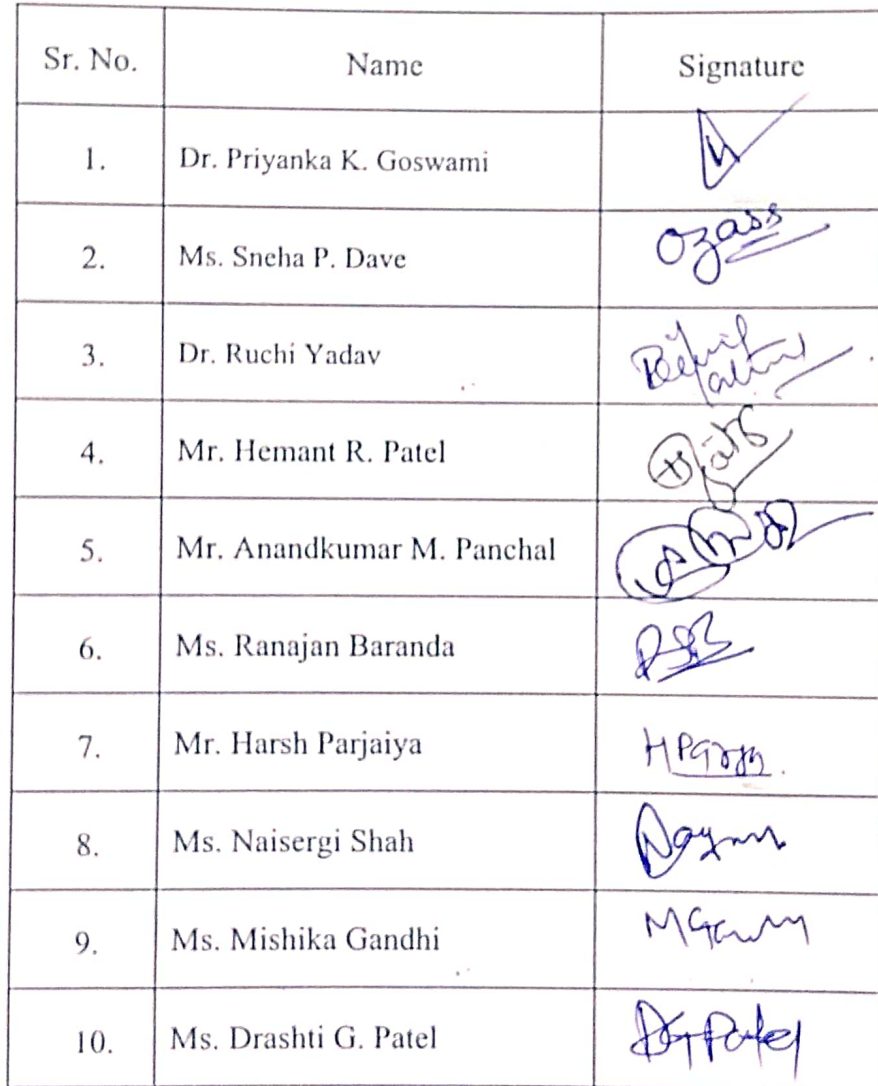 Sr. No. Name Signature
1. Dr. Priyanka K. Goswami
2. Ms. Sneha P. Dave Ozass
3. Dr. Ruchi Yadav
4. Mr. Hemant R. Patel
5. Mr. Anandkumar M. Panchal
6. Ms. Ranajan Baranda
7. Mr. Harsh Parjaiya
8. Ms. Naisergi Shah
9. Ms. Mishika Gandhi
10. Ms. Drashti G. Patel DGPatel